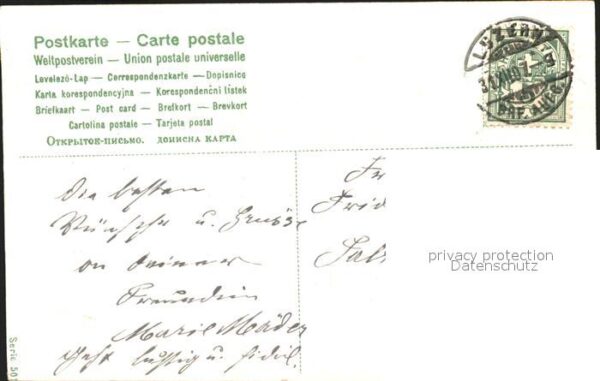 Postkarte — Carte postale
Weltpostverein — Union postale universelle
Levelező-Lap — Correspondenzkarte — Dopisnice
Karta korespondencyjna — Korespondenční lístek
Briefkaart — Post card — Brefkort — Brevkort
Cartolina postale — Tarjeta postal
Открытое-письмо. дописна карта
LUZERN
31.XII.07.-9
BRF. AUFG.
Die besten
Wünsche u. Grüsse
von Deiner
Freundin
Marie Mäder
Geht lustig u. fidel.
Fr
Frid
privacy protection
Datenschutz
Serie 50